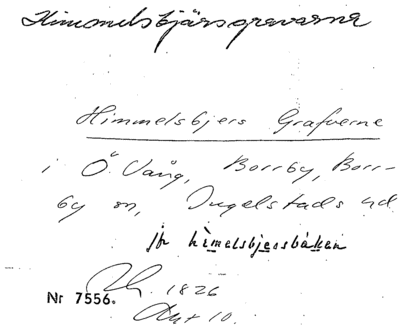 Himmelsbjärsgravarna
Himmelsbjers Grafverne
i Ö. Vång, Borrby, Borr-
by sn, Ingelstads hd.
jfr himelsbjersbaken
1826
Nr 7556.
Akt 10.